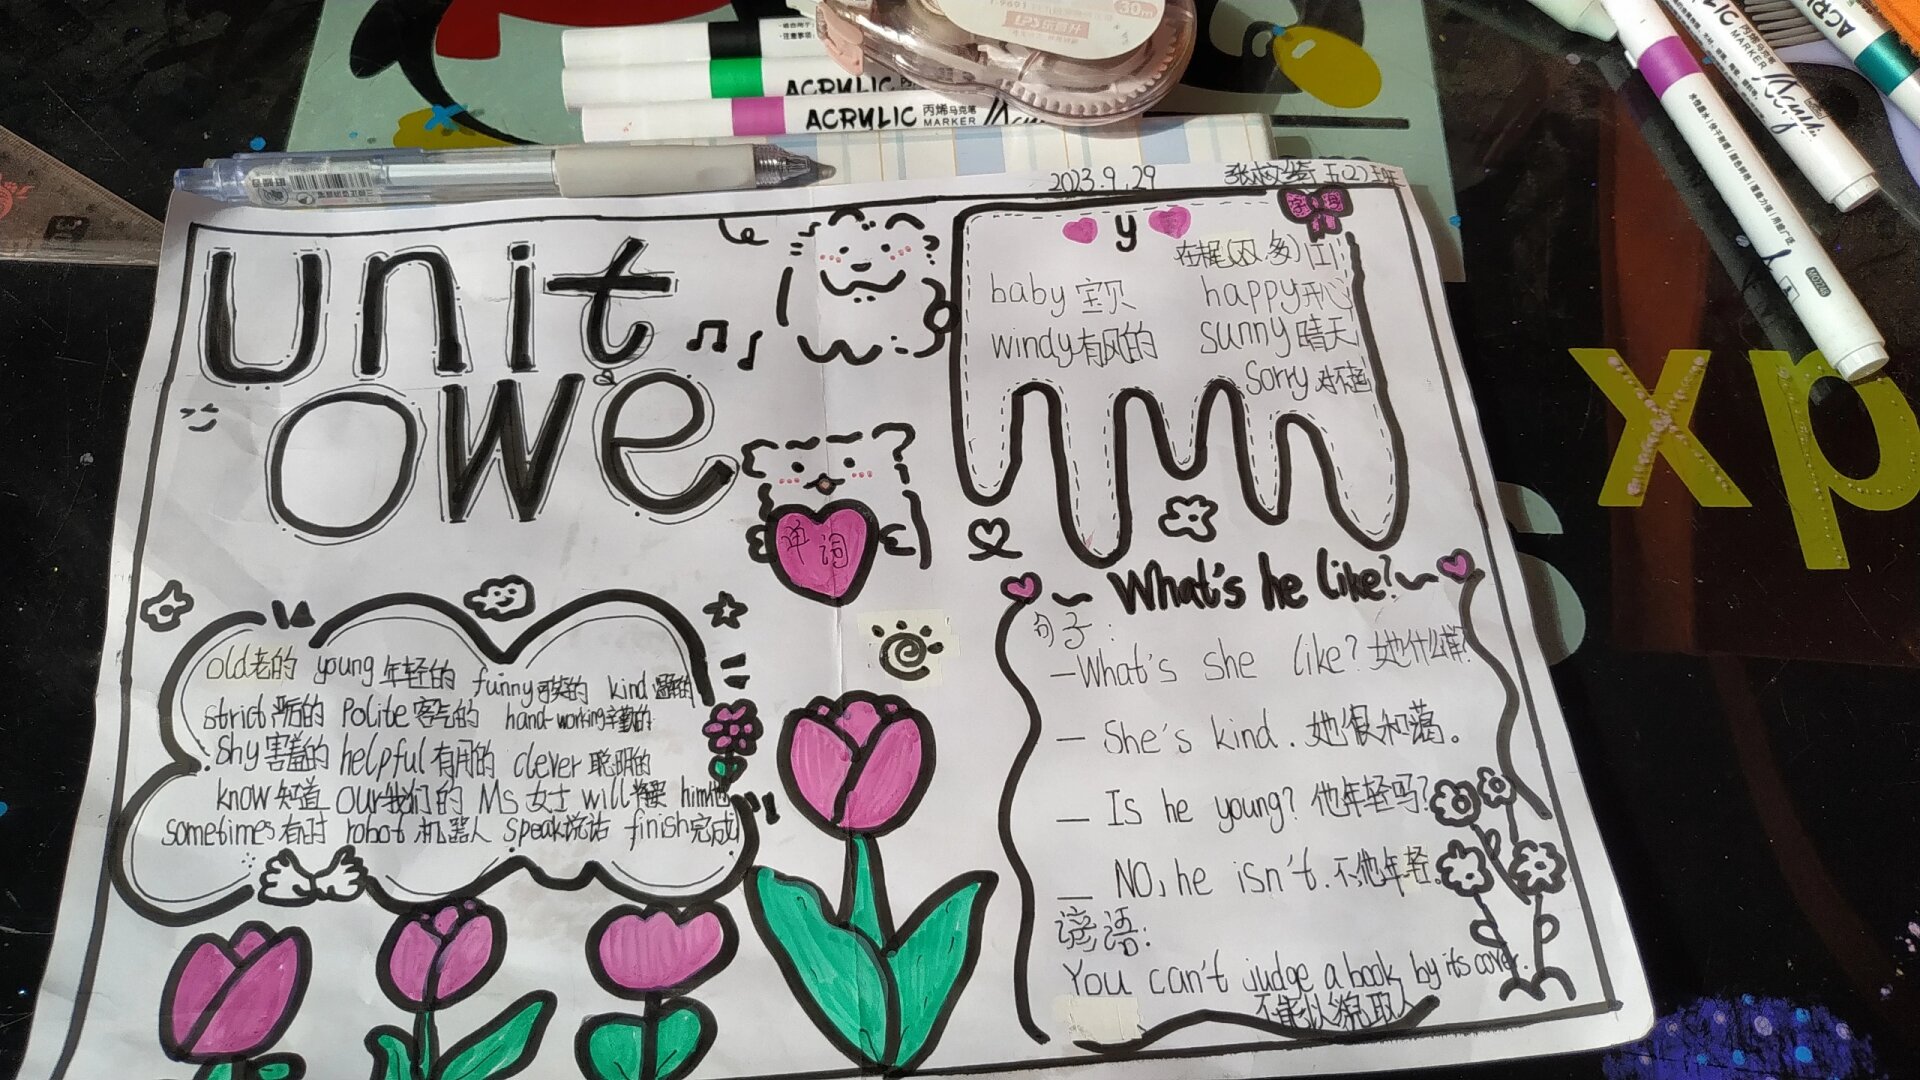 ACRYLIC
ACRYLIC 丙烯马克笔
MARKER
30m
ACRYLIC
MARKER
2023.9.29 五(2)班
unit
owe
y
字母
在尾(双.多)[i]
baby 宝贝 happy开心
windy有风的 sunny晴天
sorry
单词
old老的 young 年轻的 funny可笑的 kind
strict 严厉的 Polite 客气的 hand-working辛勤的
shy 害羞的 helpful 有用的 clever 聪明的
know 知道 our我们的 Ms 女士 will将要 him他
sometimes有时 robot 机器人 speak说话 finish完成
~ What's he like? ~
句子:
—What's she like? 她什么样?
— She's kind. 她很和蔼。
— Is he young? 他年轻吗?
— NO, he isn't. 不他年轻.
谚语:
You can't judge a book by its cover.
不能以貌取人
xp